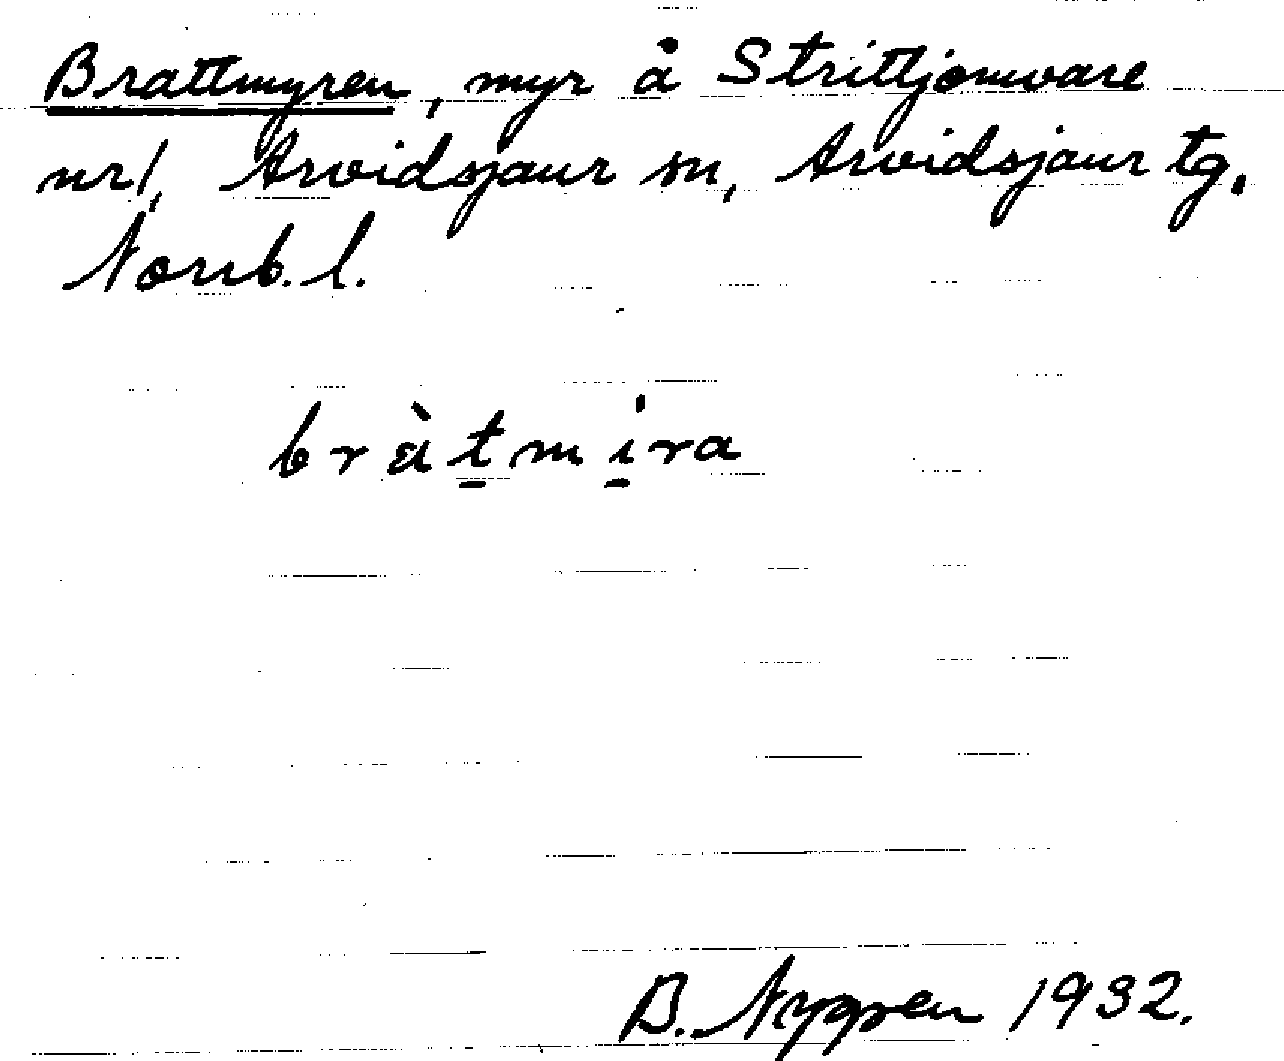 Brattmyren, myr å Strittjomvare
nr1, Arvidsjaur sn, Arvidsjaur tg.
Norrb. l.
bràtmira
B. Nygren 1932.